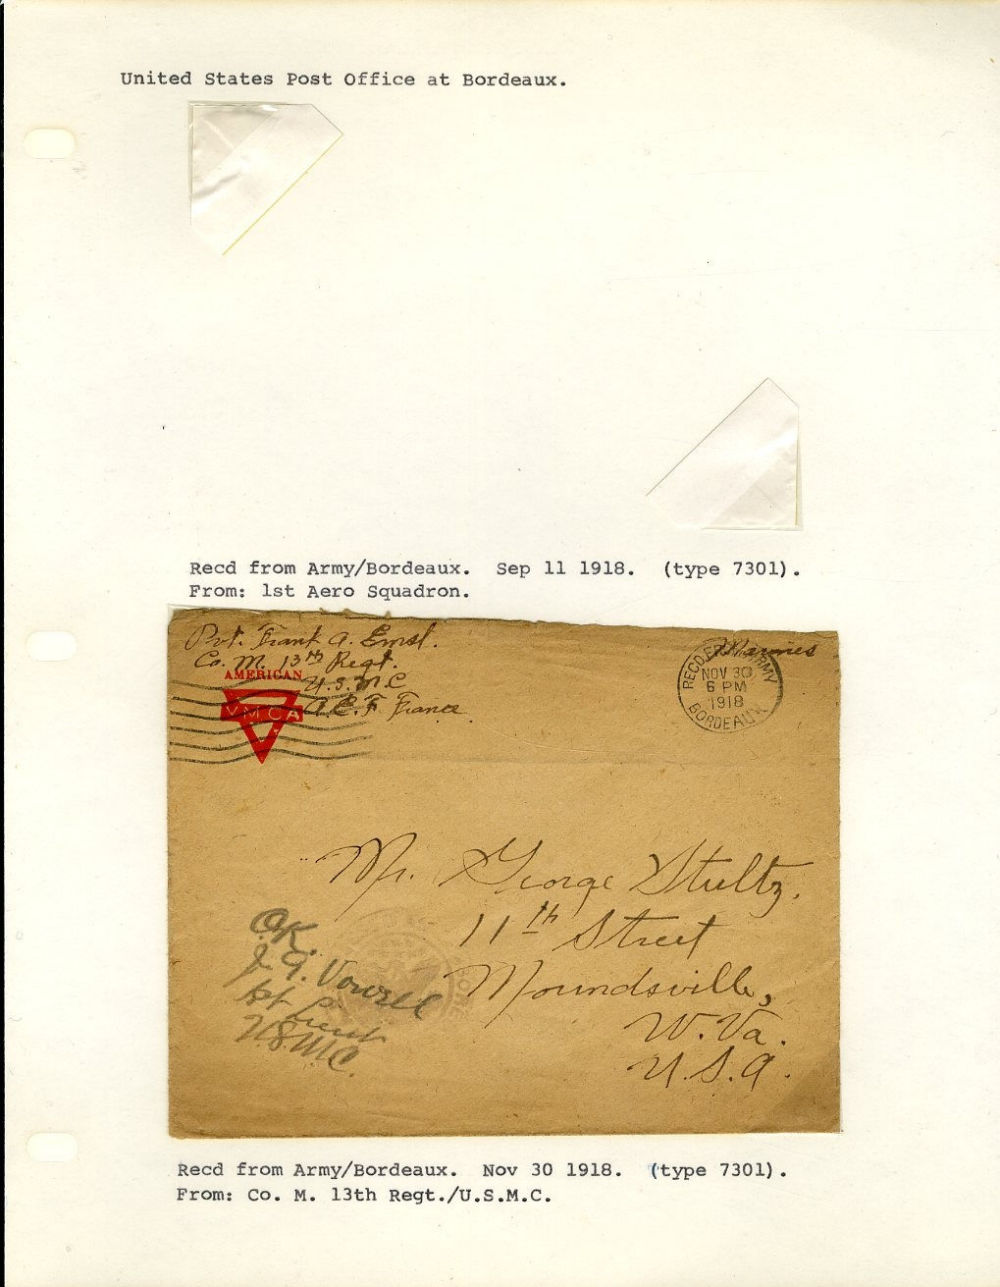 United States Post Office at Bordeaux.
Recd from Army/Bordeaux. Sep 11 1918. (type 7301).
From: 1st Aero Squadron.
Pvt. Frank A. Ernst.
Co. M. 13th Regt.
U.S.M.C
A.E.F. France
AMERICAN
YMCA
Marines
RECD. FROM ARMY
NOV 30
6 PM
1918
BORDEAUX
Mr. George Stultz.
11th Street
Moundsville,
W. Va.
U.S.A.
O.K.
J. A. Vowell
1st Lieut
U.S.M.C.
Recd from Army/Bordeaux. Nov 30 1918. (type 7301).
From: Co. M. 13th Regt./U.S.M.C.